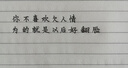 你不喜欢欠人情
为的就是以后好翻脸